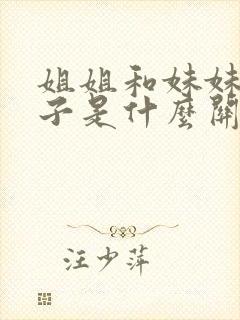 姐姐和妹妹
子是什麼關
汪少萍